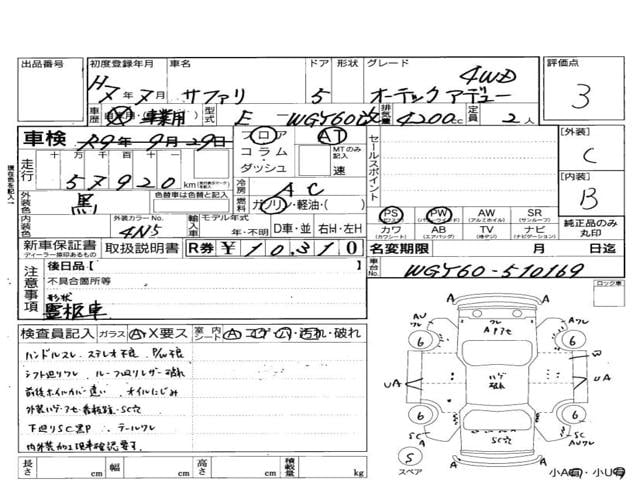 出品番号 初度登録年月 車名 ドア 形状 グレード 評価点
H7年7月 サファリ 5 オーテックアデュー 4WD 3
車歴 自家用 事業用 型式 E-WGY60改 排気量 4200cc 定員 2人
車検 R9年9月29日 フロア AT
走行 十万 万 千 百 十 コラム・ダッシュ MTのみ記入 速
57920km
セールスポイント
[外装] C
[内装] B
外装色 黒 色替車は色替と記入 冷房 AC
燃料 ガソリン・軽油・( )
内装色 外装カラーNo. 4N5 輸入車 モデル年式 年・不明 D車・並 右H・左H
PS PW AW SR
(パワステ) (パワーウィンド) (アルミホイル) (サンルーフ)
カワ AB TV ナビ
(カワシート) (エアバッグ) (後デジ) (ナビゲーション)
純正品のみ丸印
新車保証書 取扱説明書 R券 ¥10,310 名変期限 月 日迄
ディーラー捺印あるもの
車台No. WGY60-510169
注意事項 後日品【
不具合箇所等
形状
霊柩車
ロック車
検査員記入 ガラス A・X要ス 室内シート A・コゲ・ハリ・汚れ・破れ
ハンドルスレ ステレオ不良 P/W不良
シフト廻りワレ ルーフ廻りレザー破れ
前後ホイルカバー違い オイルにじみ
下廻りSC黒P テールワレ
内外装加工現車確認要す
AU ワレ APアセ ワレ
6 6
UA ハゲ 破れ UA
6 6
SC A SC☆ SC AUワレ A
S
スペア
長さ cm 幅 cm 高さ cm 積載量 kg
小A・小U
現在色を記入